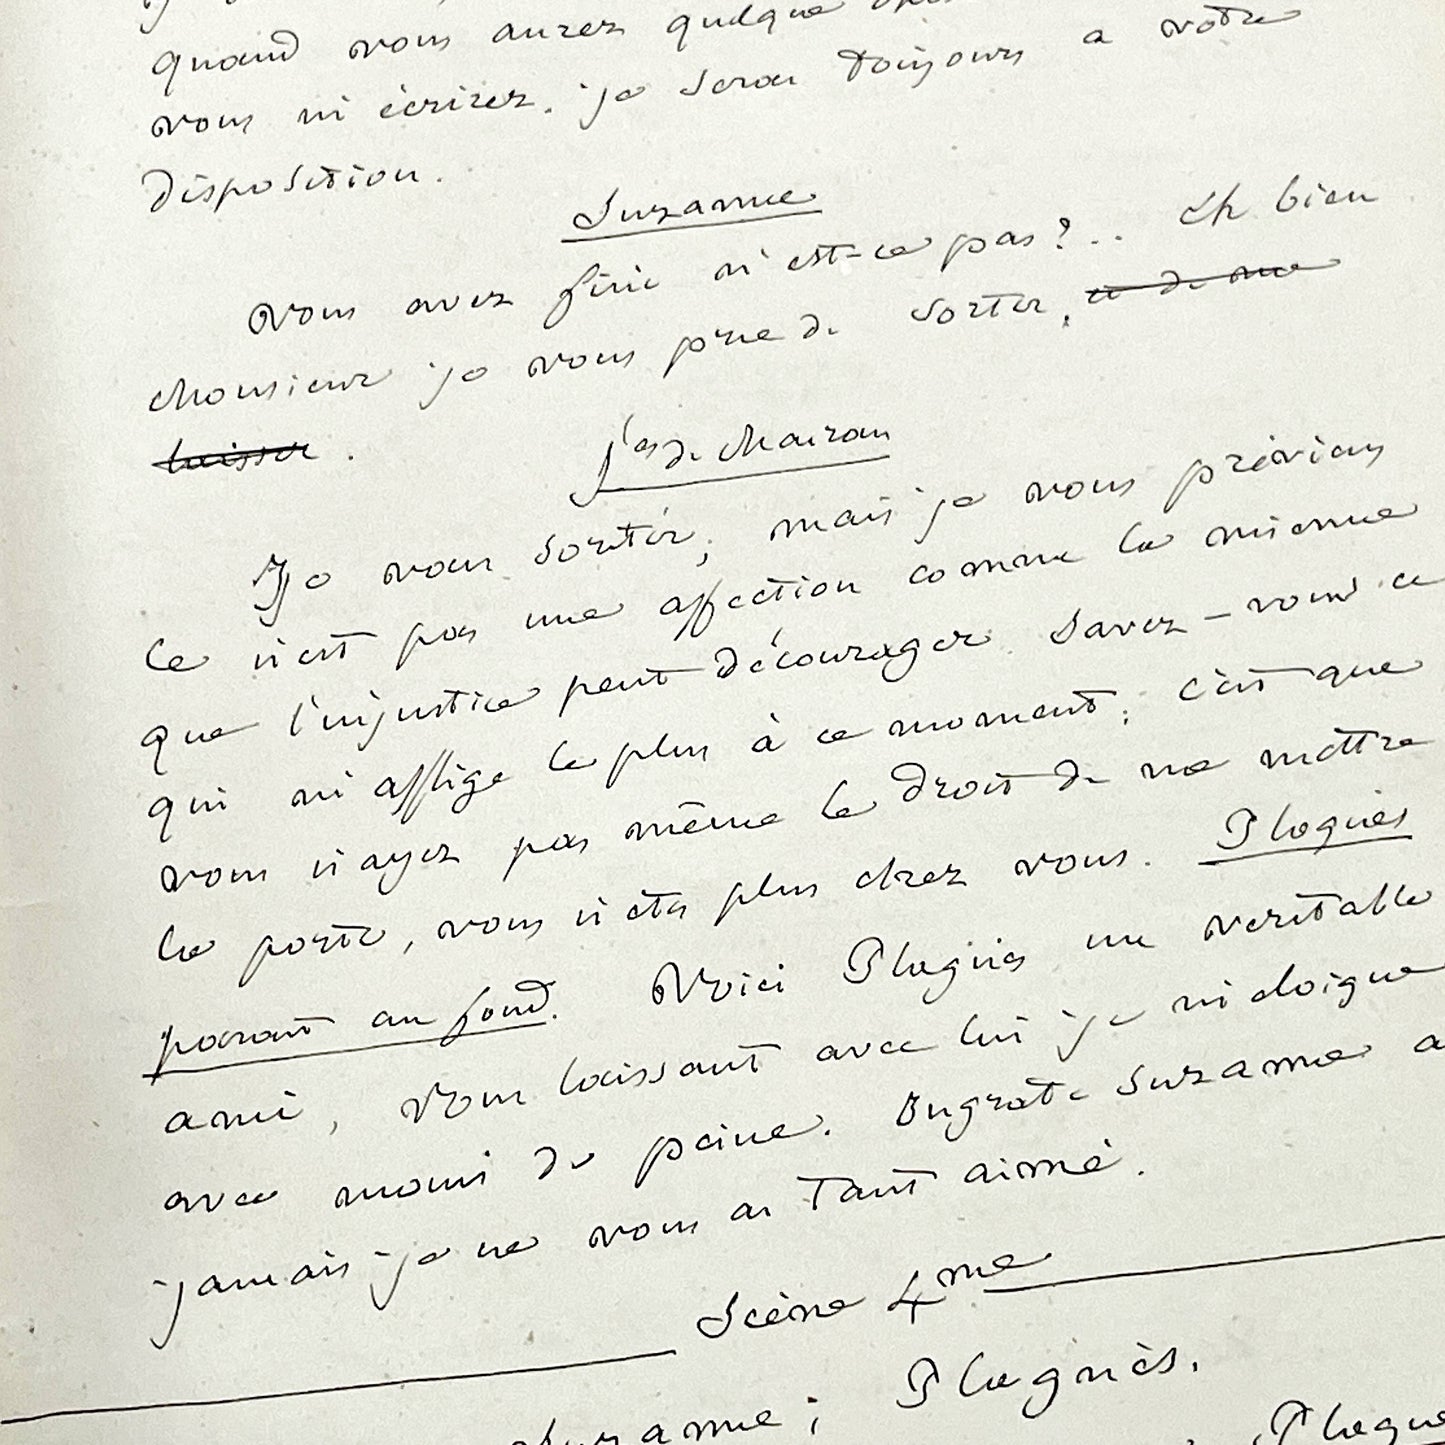 quand vous aurez quelque
vous m'écrirez. je serai toujours a votre
disposition.
Suzanne
Vous avez fini n'est-ce pas ?.. Eh bien
Monsieur je vous prie de sortir, et de me
laisser.
de Mairan
Je vais sortir, mais je vous préviens
Ce n'est pas une affection comme la mienne
que l'injustice peut décourager. Savez-vous ce
qui m'afflige le plus à ce moment; c'est que
vous n'ayez pas même le droit de me mettre
la porte, vous n'êtes plus chez vous. Plagnès
parait au fond. Voici Plagnès un veritable
ami, Vous laissant avec lui je m'éloigne
avec moins de peine. Ingrate Suzanne a
jamais je ne vous ai tant aimé.
Scène 4me
Suzanne; Plagnès.